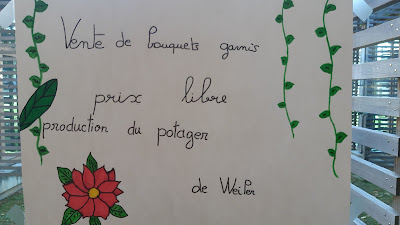 Vente de bouquets garnis
prix libre
production du potager
de Weiler